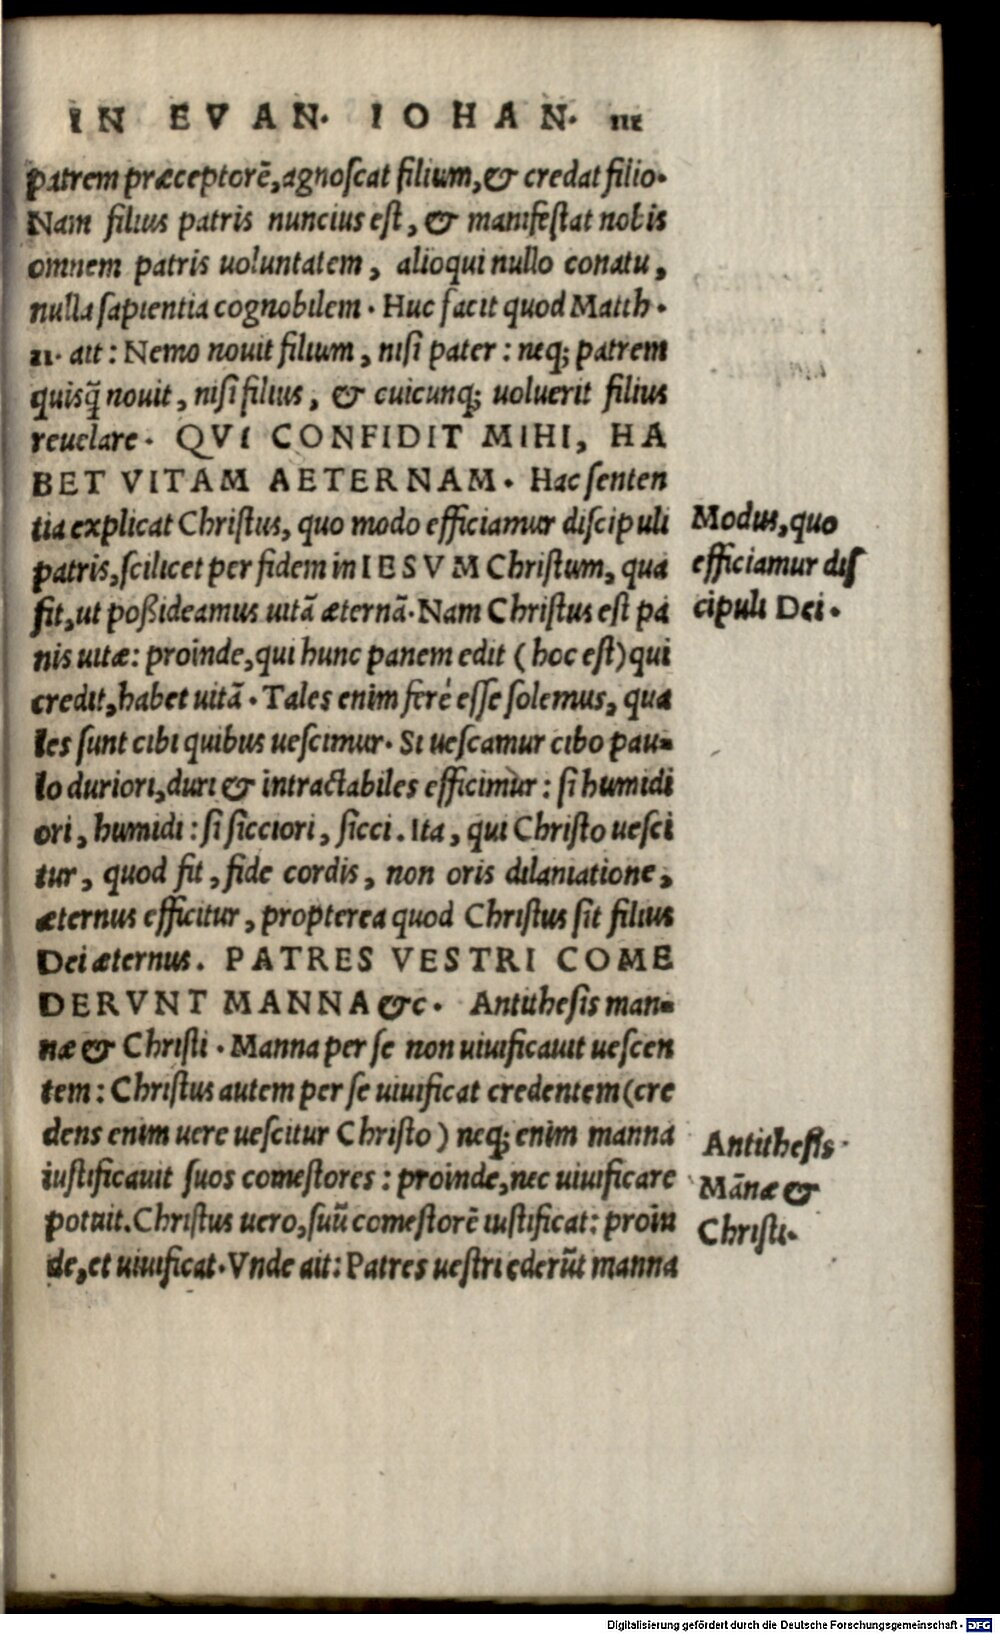 IN EVAN. IOHAN. 111
patrem præceptorē, agnoscat filium, & credat filio.
Nam filius patris nuncius est, & manifestat nobis
omnem patris uoluntatem, alioqui nullo conatu,
nulla sapientia cognobilem. Huc facit quod Matth.
11. ait: Nemo nouit filium, nisi pater: neq; patrem
quisq̃ nouit, nisi filius, & cuicunq; uoluerit filius
reuelare. QVI CONFIDIT MIHI, HA
BET VITAM AETERNAM. Hac senten
tia explicat Christus, quo modo efficiamur discipuli
patris, scilicet per fidem in IESVM Christum, qua
fit, ut poßideamus uitā æternā. Nam Christus est pa
nis uitæ: proinde, qui hunc panem edit (hoc est) qui
credit, habet uitā. Tales enim ferè esse solemus, qua
les sunt cibi quibus uescimur. Si uescamur cibo pau-
lo duriori, duri & intractabiles efficimur: si humidi
ori, humidi: si sicciori, sicci. Ita, qui Christo uesci
tur, quod fit, fide cordis, non oris dilaniatione,
æternus efficitur, propterea quod Christus sit filius
Dei æternus. PATRES VESTRI COME
DERVNT MANNA &c. Antithesis man-
næ & Christi. Manna per se non uiuificauit uescen
tem: Christus autem per se uiuificat credentem (cre
dens enim uere uescitur Christo) neq; enim manna
iustificauit suos comestores: proinde, nec uiuificare
potuit. Christus uero, suũ comestorē iustificat: proin
de, et uiuificat. Vnde ait: Patres uestri ederũt manna
Modus, quo
efficiamur dis
cipuli Dei.
Antithesis
Mānæ &
Christi.
Digitalisierung gefördert durch die Deutsche Forschungsgemeinschaft - DFG